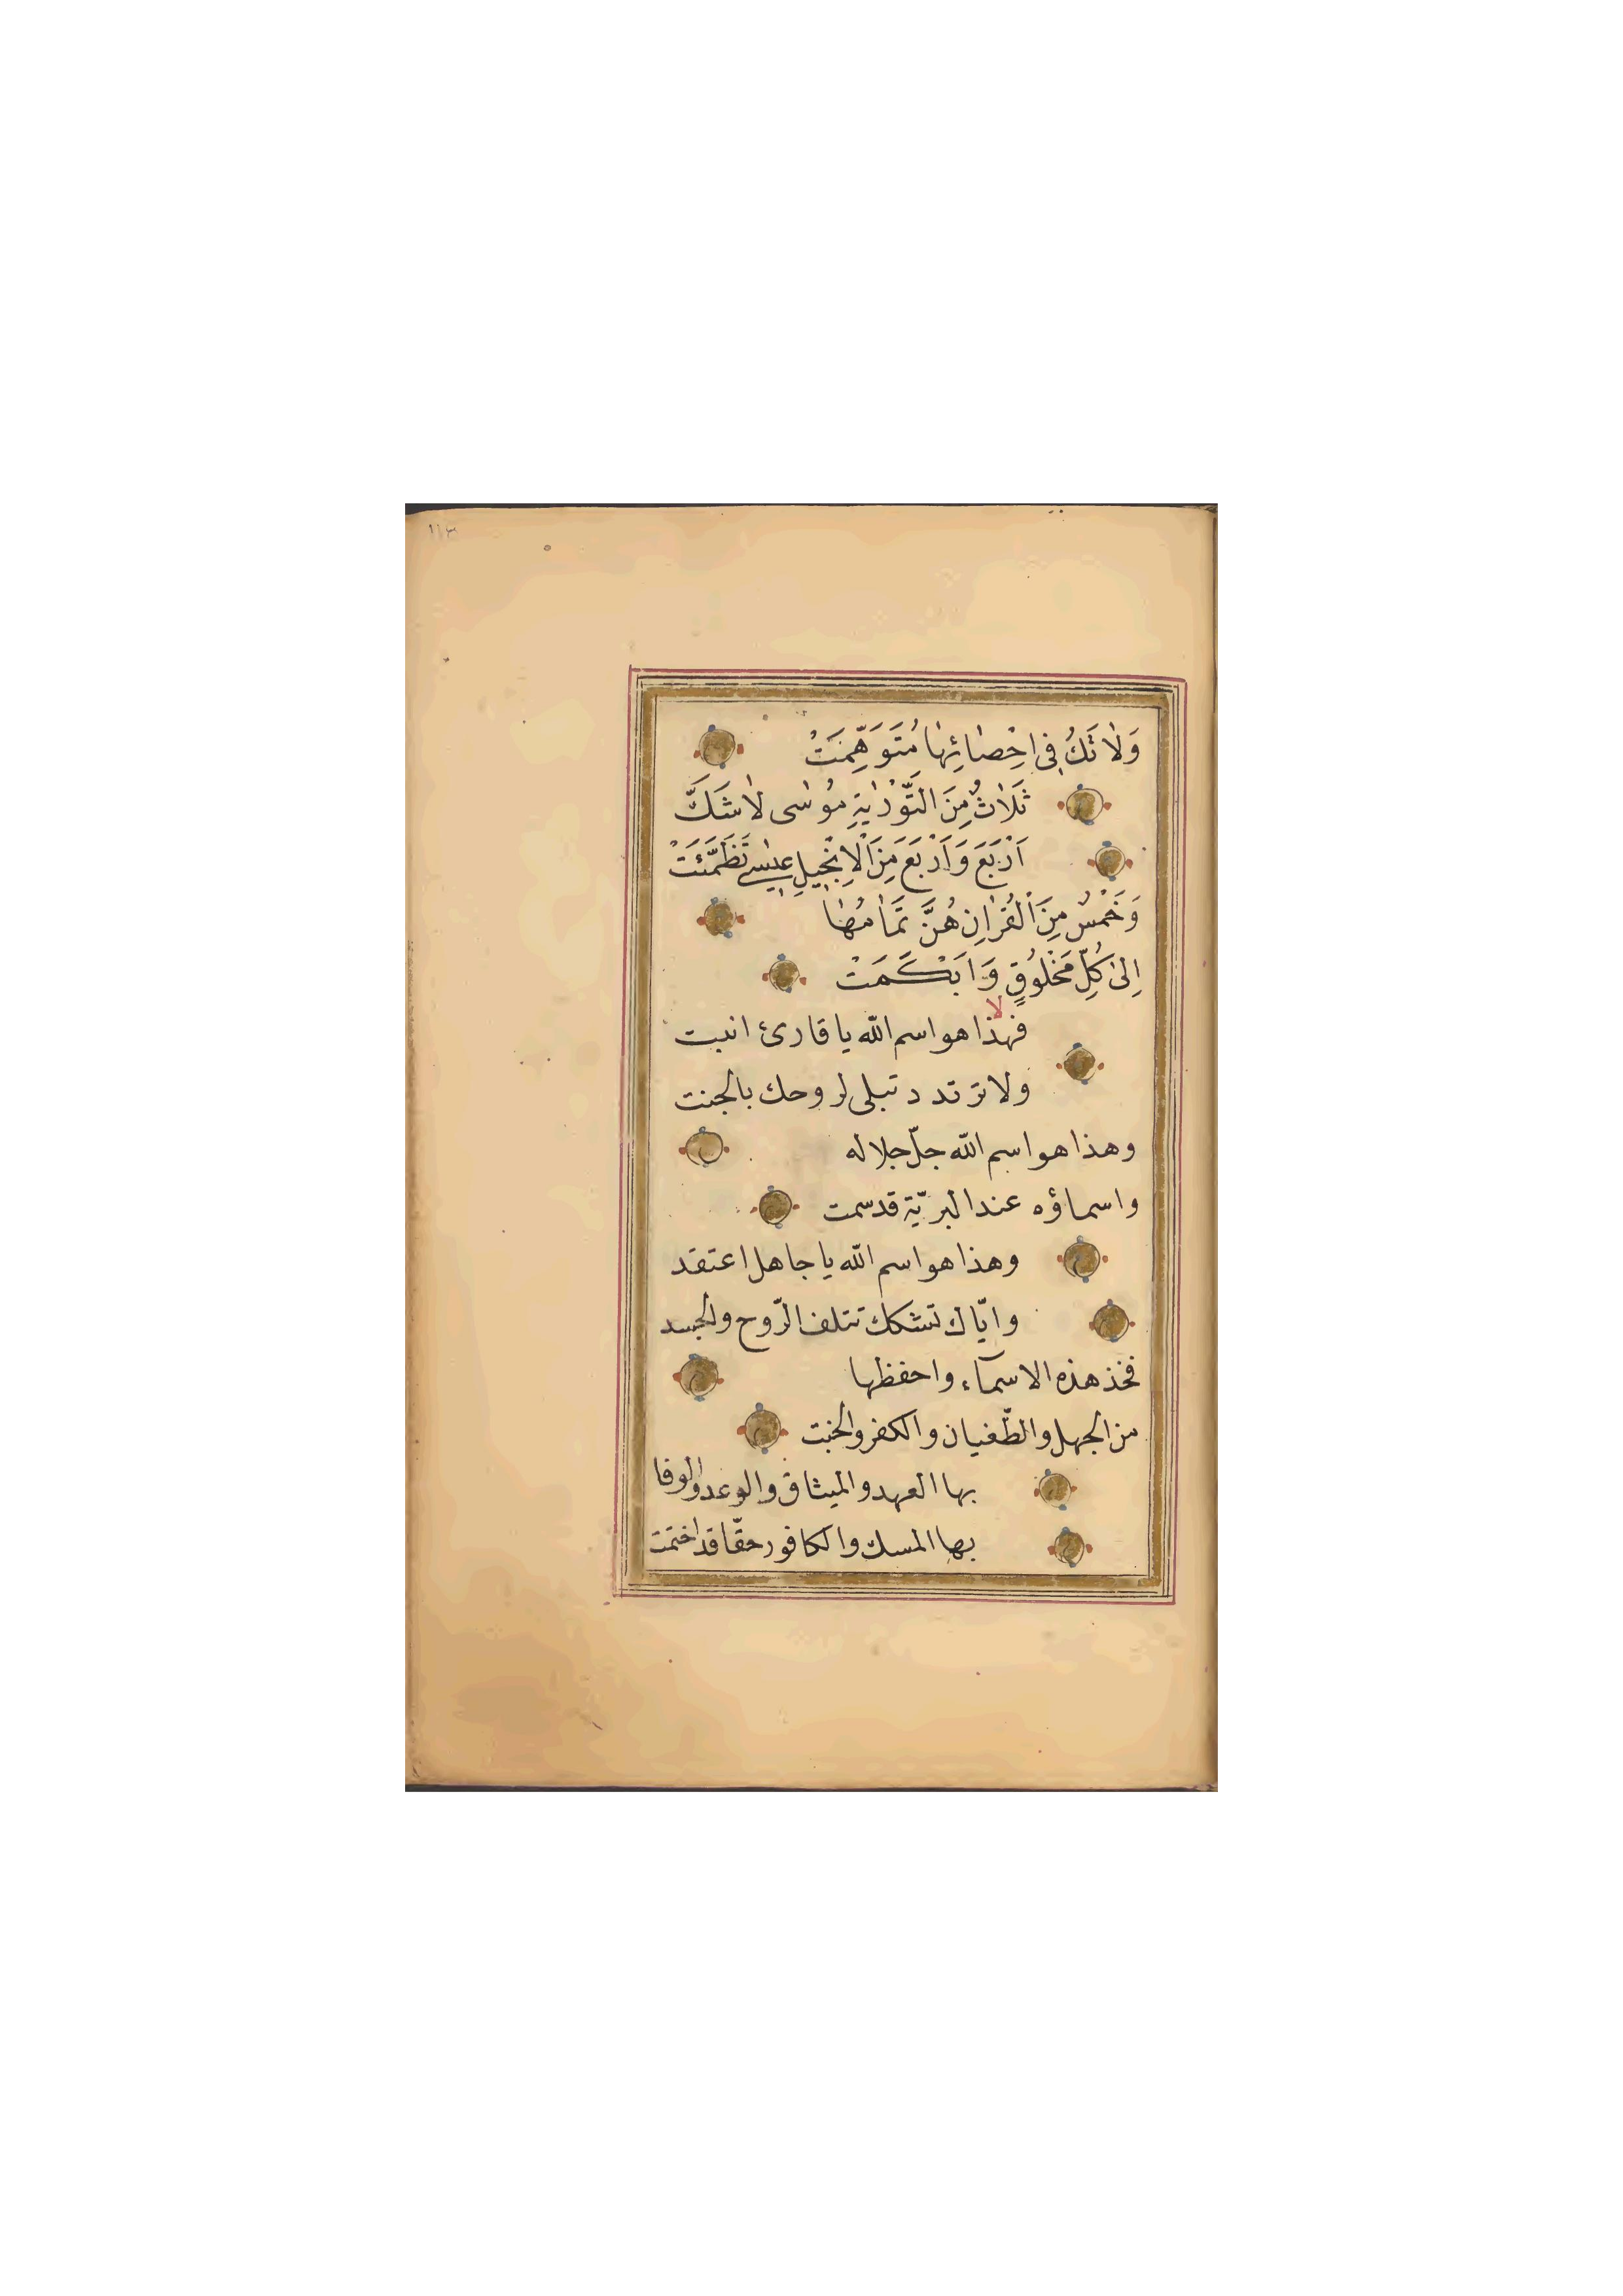 ١١٣
وَلَا تَكُ فِى اِحْصٰائِهٰا مُتَوَهِّمَتْ
ثَلٰاثٌ مِنَ التَّوْرٰيةِ مُوسٰى لٰاشَكَّ
اَرْبَعَ وَاَرْبَعَ مِنَ الْاِنْجٖيلِ عٖيسٰى
وَخَمْسٌ مِنَ الْقُرْاٰنِ هُنَّ تَمَامُهٰا
اِلىٰ كُلِّ مَخْلُوقٍ وَاَبْكَمَتْ
لا
فهذا هو اسم الله يا قارئ اثبت
ولا ترتدد تبلى لروحك بالجنت
وهذا هو اسم الله جلّ جلاله
واسماؤه عند البريّة قد سمت
وهذا هو اسم الله يا جاهل اعتقد
وايّاك تشكك تتلف الرّوح والجسد
فخذ هذه الاسمآء واحفظها
من الجهل والطّغيان والكفر والخبت
بها العهد والميثاق والوعد والوفا
بها المسك والكافور حقّا قد اختمت